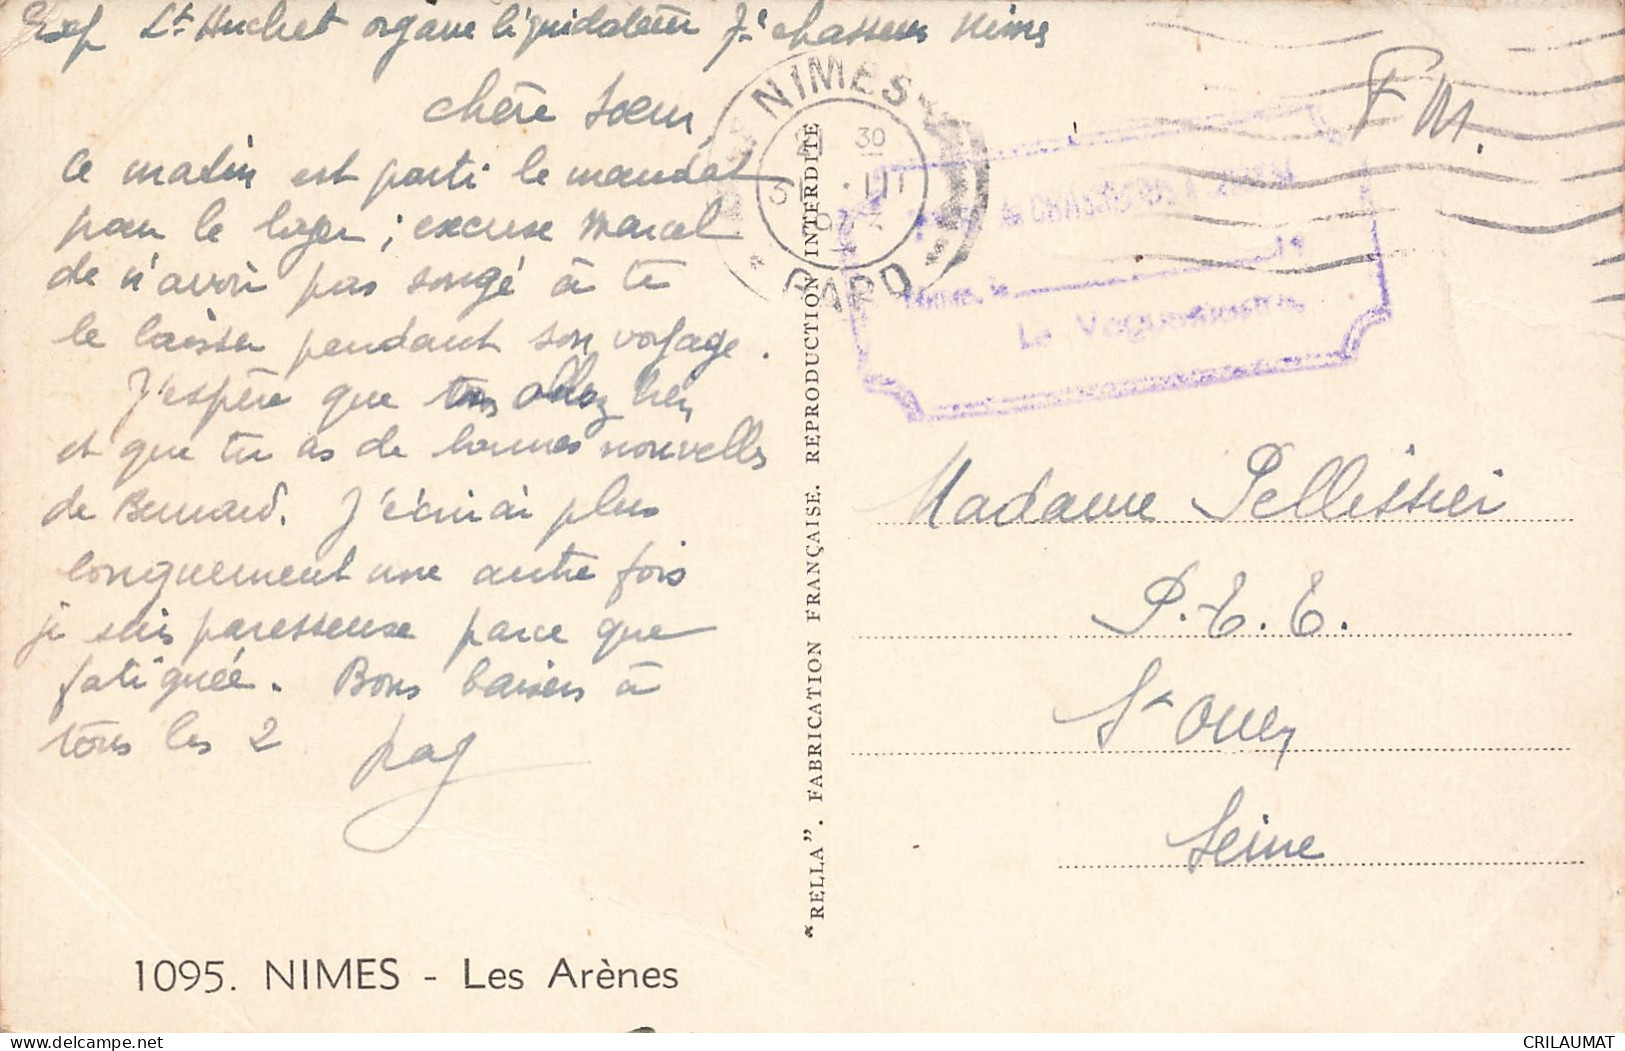 Exp Lt Huchet organe liquidateur 7e chasseurs Nimes
chère soeur,
ce matin est parti le mandat
pour le loyer ; excuse Marcel
de n'avoir pas songé à te
le laisser pendant son voyage.
J'espère que tous allez bien
et que tu as de bonnes nouvelles
de Bernard. J'écrirai plus
longuement une autre fois
je suis paresseuse parce que
fatiguée. Bons baisers à
tous les 2
1095. NIMES - Les Arènes
"RELLA". FABRICATION FRANÇAISE. REPRODUCTION INTERDITE
NIMES
30
GARD
Le Vaguemestre,
F M.
Madame Pellissier
P.T.T.
St Ouen
Seine
delcampe.net
CRILAUMAT